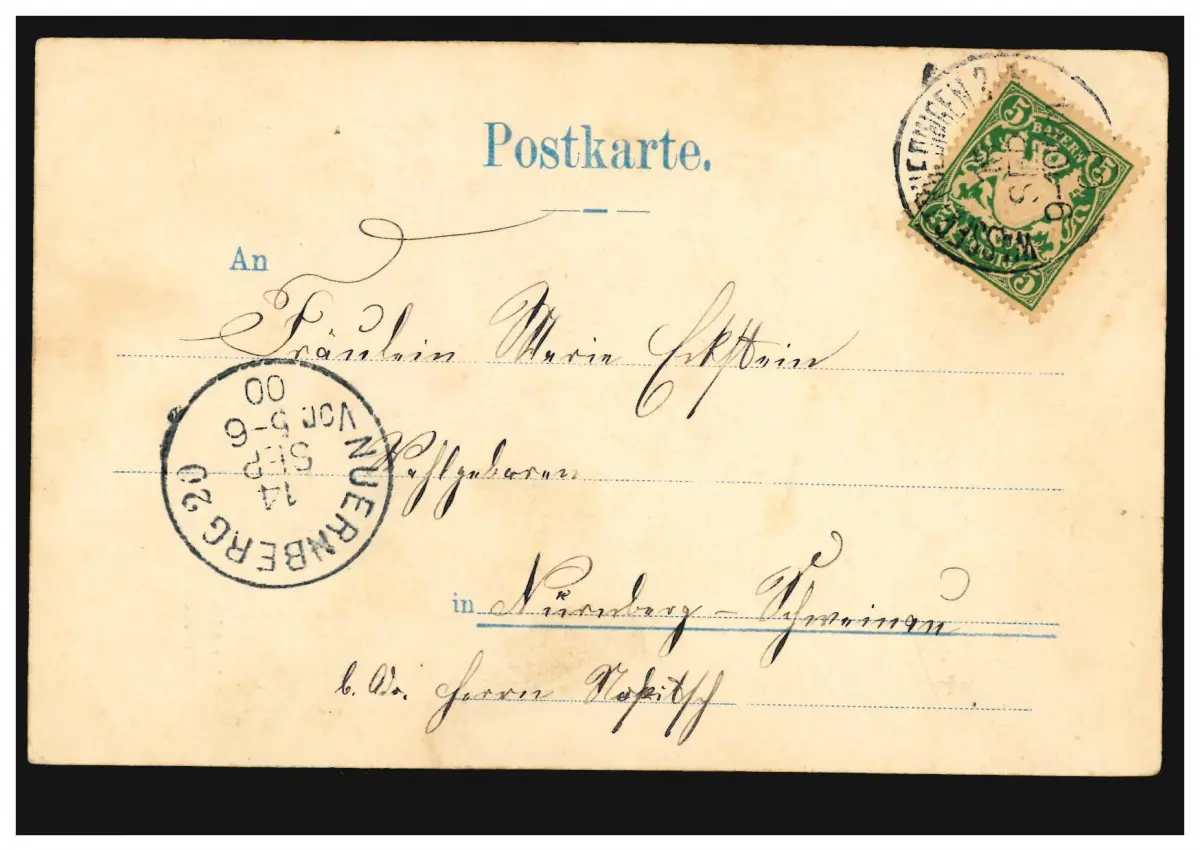 Postkarte.
5 BAYERN 5
5
An
Fräulein Marie Eckstein
Wohlgeboren
in Nürnberg – Schweinau
b. Adr. Herrn
NUERNBERG 20
14
SEP
Vor. 5-6
00